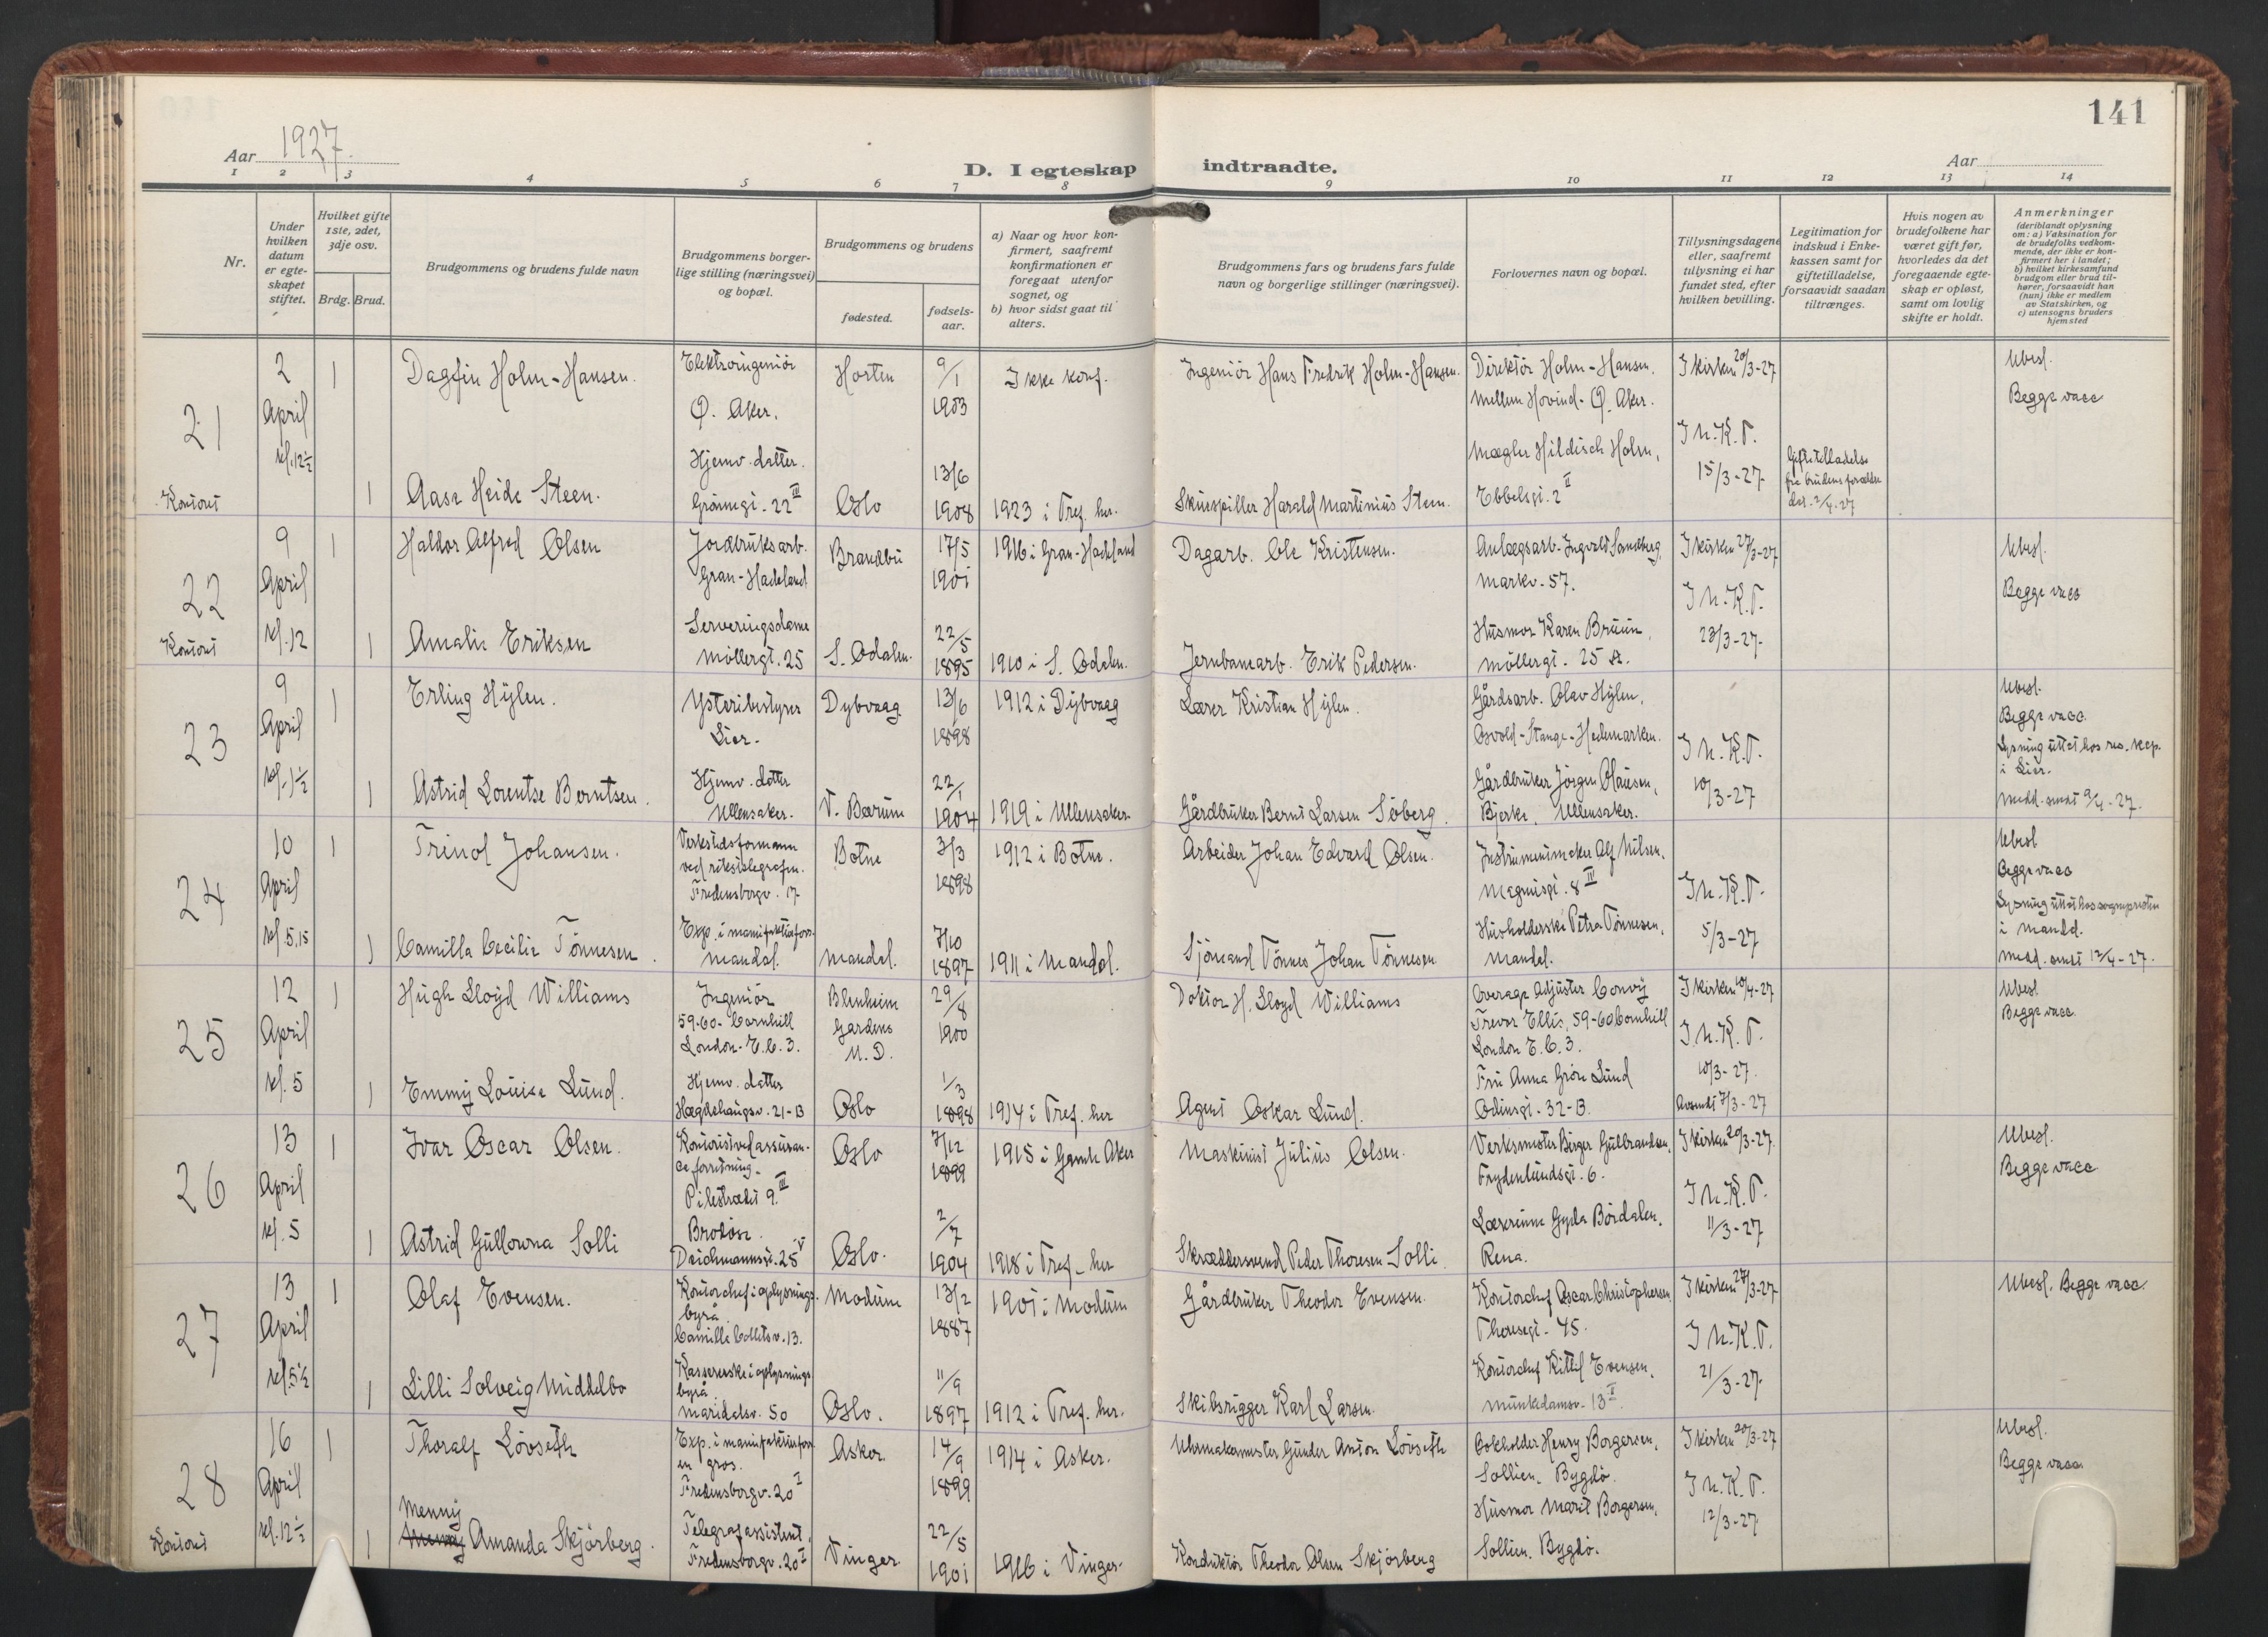 141
Aar 1927.
D. I egteskap indtraadte.
Aar
1 2 3 4 5 6 7 8 9 10 11 12 13 14
Nr.
Under hvilken datum er egteskapet stiftet.
Hvilket gifte 1ste, 2det, 3dje osv.
Brdg. Brud.
Brudgommens og brudens fulde navn
Brudgommens borgerlige stilling (næringsvei) og bopæl.
Brudgommens og brudens
fødested.
fødselsaar.
a) Naar og hvor konfirmert, saafremt konfirmationen er foregaat utenfor sognet, og
b) hvor sidst gaat til alters.
Brudgommens fars og brudens fars fulde navn og borgerlige stillinger (næringsvei).
Forlovernes navn og bopæl.
Tillysningsdagene eller, saafremt tillysning ei har fundet sted, efter hvilken bevilling.
Legitimation for indskud i Enkekassen samt for giftetilladelse, forsaavidt saadan tiltrænges.
Hvis nogen av brudefolkene har været gift før, hvorledes da det foregaaende egteskap er opløst, samt om lovlig skifte er holdt.
Anmerkninger (deriblandt oplysning om: a) Vaksination for de brudefolks vedkommende, der ikke er konfirmert her i landet; b) hvilket kirkesamfund brudgom eller brud tilhører, forsaavidt han (hun) ikke er medlem av Statskirken, og c) utensogns bruders hjemsted
21
Kontoret
2 April kl. 12½
1
Dagfin Holm-Hansen.
Elektroingeniör
Ø. Aker.
Horten
9/1 1903
Ikke konf.
Ingeniör Hans Fredrik Holm-Hansen.
Direktör Holm-Hansen,
Mellem Hovind-Ø. Aker.
I kirken 20/3-27
I N.K.T.
15/3-27
Ubesl.
Begge vacc
1
Aase Heide Steen.
Hjemv. datter.
Grönnegt. 22 III
Oslo
13/6 1908
1923 i Tref. her.
Skuespiller Harald Martinius Steen.
Mægler Hildisch Holm,
Ebbelsgt. 2 II
Giftetilladelse
fra brudens forældre
dat. 2/4-27
22
Kontoret
9 April kl. 12
1
Haldor Alfred Olsen
Jordbruksarb.
Gran-Hadeland
Brandbu
17/5 1901
1916 i Gran-Hadeland
Dagarb. Ole Kristensen.
Anlægsarb. Ingvald Sandberg,
Markv. 57.
I kirken 27/3-27
I N.K.T.
23/3-27.
Ubesl.
Begge vacc
1
Amalie Eriksen
Serveringsdame
Möllergt. 25
S. Odalen.
22/5 1895
1910 i S. Odalen.
Jernbanearb. Erik Pedersen.
Husmor Karen Bruun,
Möllergt. 25 A.
23
9 April kl. 1½
1
Erling Hylen.
Ysteribestyrer
Lier.
Dybvaag
13/6 1898
1912 i Dybvaag
Lærer Kristian Hylen.
Gårdsarb. Olav Hylen,
Osvold-Stange-Hedemarken.
I N.K.T.
10/3-27
Ubesl.
Begge vacc.
Lysning uttat hos res. kap.
i Lier.
Medd. sendt 9/4-27.
1
Astrid Lorentse Berntsen.
Hjemv. datter
Ullensaker.
V. Bærum
22/1 1904
1919 i Ullensaker
Gårdbruker Bernt Larsen Söberg.
Gårdbruker Jörgen Olausen,
Bjerke, Ullensaker.
24
10 April kl. 5,15
1
Trinol Johansen.
Verkstedsformann
ved rikstelegrafen.
Fredensborgv. 17
Botne
3/3 1898
1912 i Botne.
Arbeider Johan Edvard Olsen.
Instrumentmaker Alf Nilsen,
Magnusgt. 8 IV
I N.K.T.
5/3-27
Ubesl
Begge vacc
Lysning uttat hos sogneprsten
i Mandal.
Medd. sendt 12/4-27.
1
Camilla Cecilie Tönnesen.
Exp. i manifakturforr.
Mandal.
Mandal.
7/10 1897
1911 i Mandal.
Sjömand Tönnes Johan Tönnesen
Husholderske Petra Tönnesen,
Mandal.
25
12 April kl. 5
1
Hugh Lloyd Williams
Ingeniör
59-60 Cornhill
London-E.C.3.
Blenheim
Gardens
N.D.
29/8 1900
Doktor H. Lloyd Williams
Average Adjuster Convy
Trevor Ellis, 59-60 Cornhill
London E.C.3.
I kirken 10/4-27
I N.K.T.
10/3-27.
Avsendt 7/3-27
Ubesl
Begge vacc.
1
Emmy Louise Lund.
Hjemv. datter
Hægdehaugsv. 21-B
Oslo
1/3 1898
1914 i Tref. her
Agent Oskar Lund.
Fru Anna Gröre Lund
Odinsgt. 32-B.
26
13 April kl. 5
1
Ivar Oscar Olsen.
Kontorist ved assuran-
ce forretning.
Pilestredet 9. III
Oslo
7/12 1899
1915 i Gamle Aker
Maskinist Julius Olsen.
Verksmester Birger Gulbrandsen,
Frydenlundsgt. 6.
I kirken 20/3-27.
I N.K.T.
11/3-27
Ubesl.
Begge vacc
1
Astrid Gullowna Solli
Brodöse.
Deichmannsgt. 25 V
Oslo.
2/7 1904
1918 i Tref. her
Skræddersvend Peder Thoresen Solli.
Lærerinne Gyda Bördalen,
Rena.
27
13 April kl. 5½
1
Olaf Evensen.
Kontorchef i oplysnings-
byrå.
Camilla Colletsv. 13.
Modum
13/2 1887
1901 i Modum
Gårdbruker Theodor Evensen.
Kontorchef Oscar Christophersen,
Theresegt. 45.
I kirken 27/3-27
I N.K.T.
21/3-27.
Ubesl. Begge vacc.
1
Lilli Solveig Middelbo
Kassererske i oplysnings
byrå
Maridalsv. 50
Oslo.
11/9 1897
1912 i Tref. her.
Skibsrigger Karl Larsen.
Kontorchef Kittil Evensen,
Munkdamsv. 13 II.
28
Kontoret
16 April kl. 12½
1
Thoralf Lövseth
Exp. i manufakturforr.
en gros.
Fredensborgv. 20 I
Asker.
14/9 1899
1914 i Asker.
Uhrmakermester Gunder Anton Lövseth
Bokholder Henry Borgersen,
Sollien, Bygdö.
I kirken 20/3-27
I N.K.T.
12/3-27
Ubesl.
Begge vacc.
1
Menny
Amanda Skjörberg.
Telegrafassistent,
Fredensborgv. 20 I
Vinger.
22/5 1901
1916 i Vinger.
Konduktör Theodor Olsen Skjörberg
Husmor Marit Borgersen,
Sollien, Bygdö.